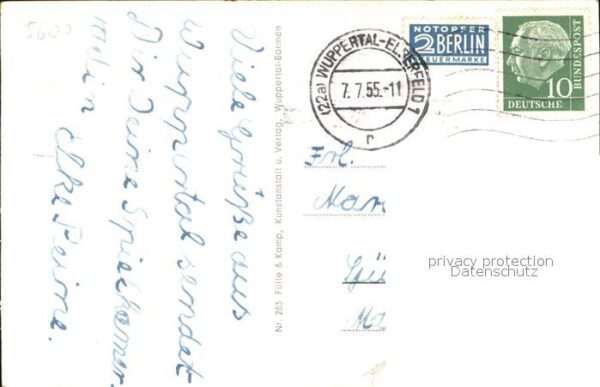 5600
Viele Grüße aus
Wuppertal sendet
Dir Deine Spielkamer
radin
Elke
NOTOPFER
2 BERLIN
STEUERMARKE
DEUTSCHE
BUNDESPOST
10
(22a) WUPPERTAL-ELBERFELD 1
7.7.55.-11
r
Nr. 285 Fülle & Kamp, Kunstanstalt u. Verlag, Wuppertal-Barmen
Frl.
Mar
privacy protection
Datenschutz